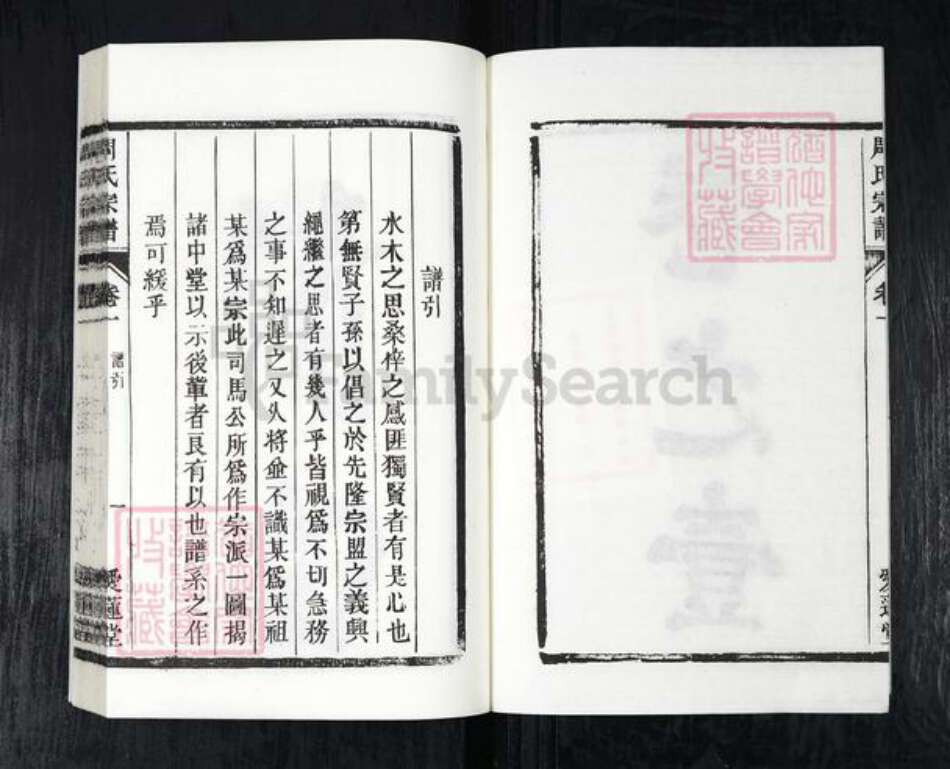 周氏宗譜
卷一
愛蓮堂
譜引
水木之思桑梓之感匪獨賢者有是心也
第無賢子孫以倡之於先隆宗盟之義興
繩繼之思者有幾人乎皆視爲不切急務
之事不知遲之又久將益不識某爲某祖
某爲某宗此司馬公所爲作宗派一圖揭
諸中堂以示後輩者良有以也譜系之作
焉可緩乎
周氏宗譜
卷一
譜引
一
愛蓮堂
譜學會
收藏
FamilySearch